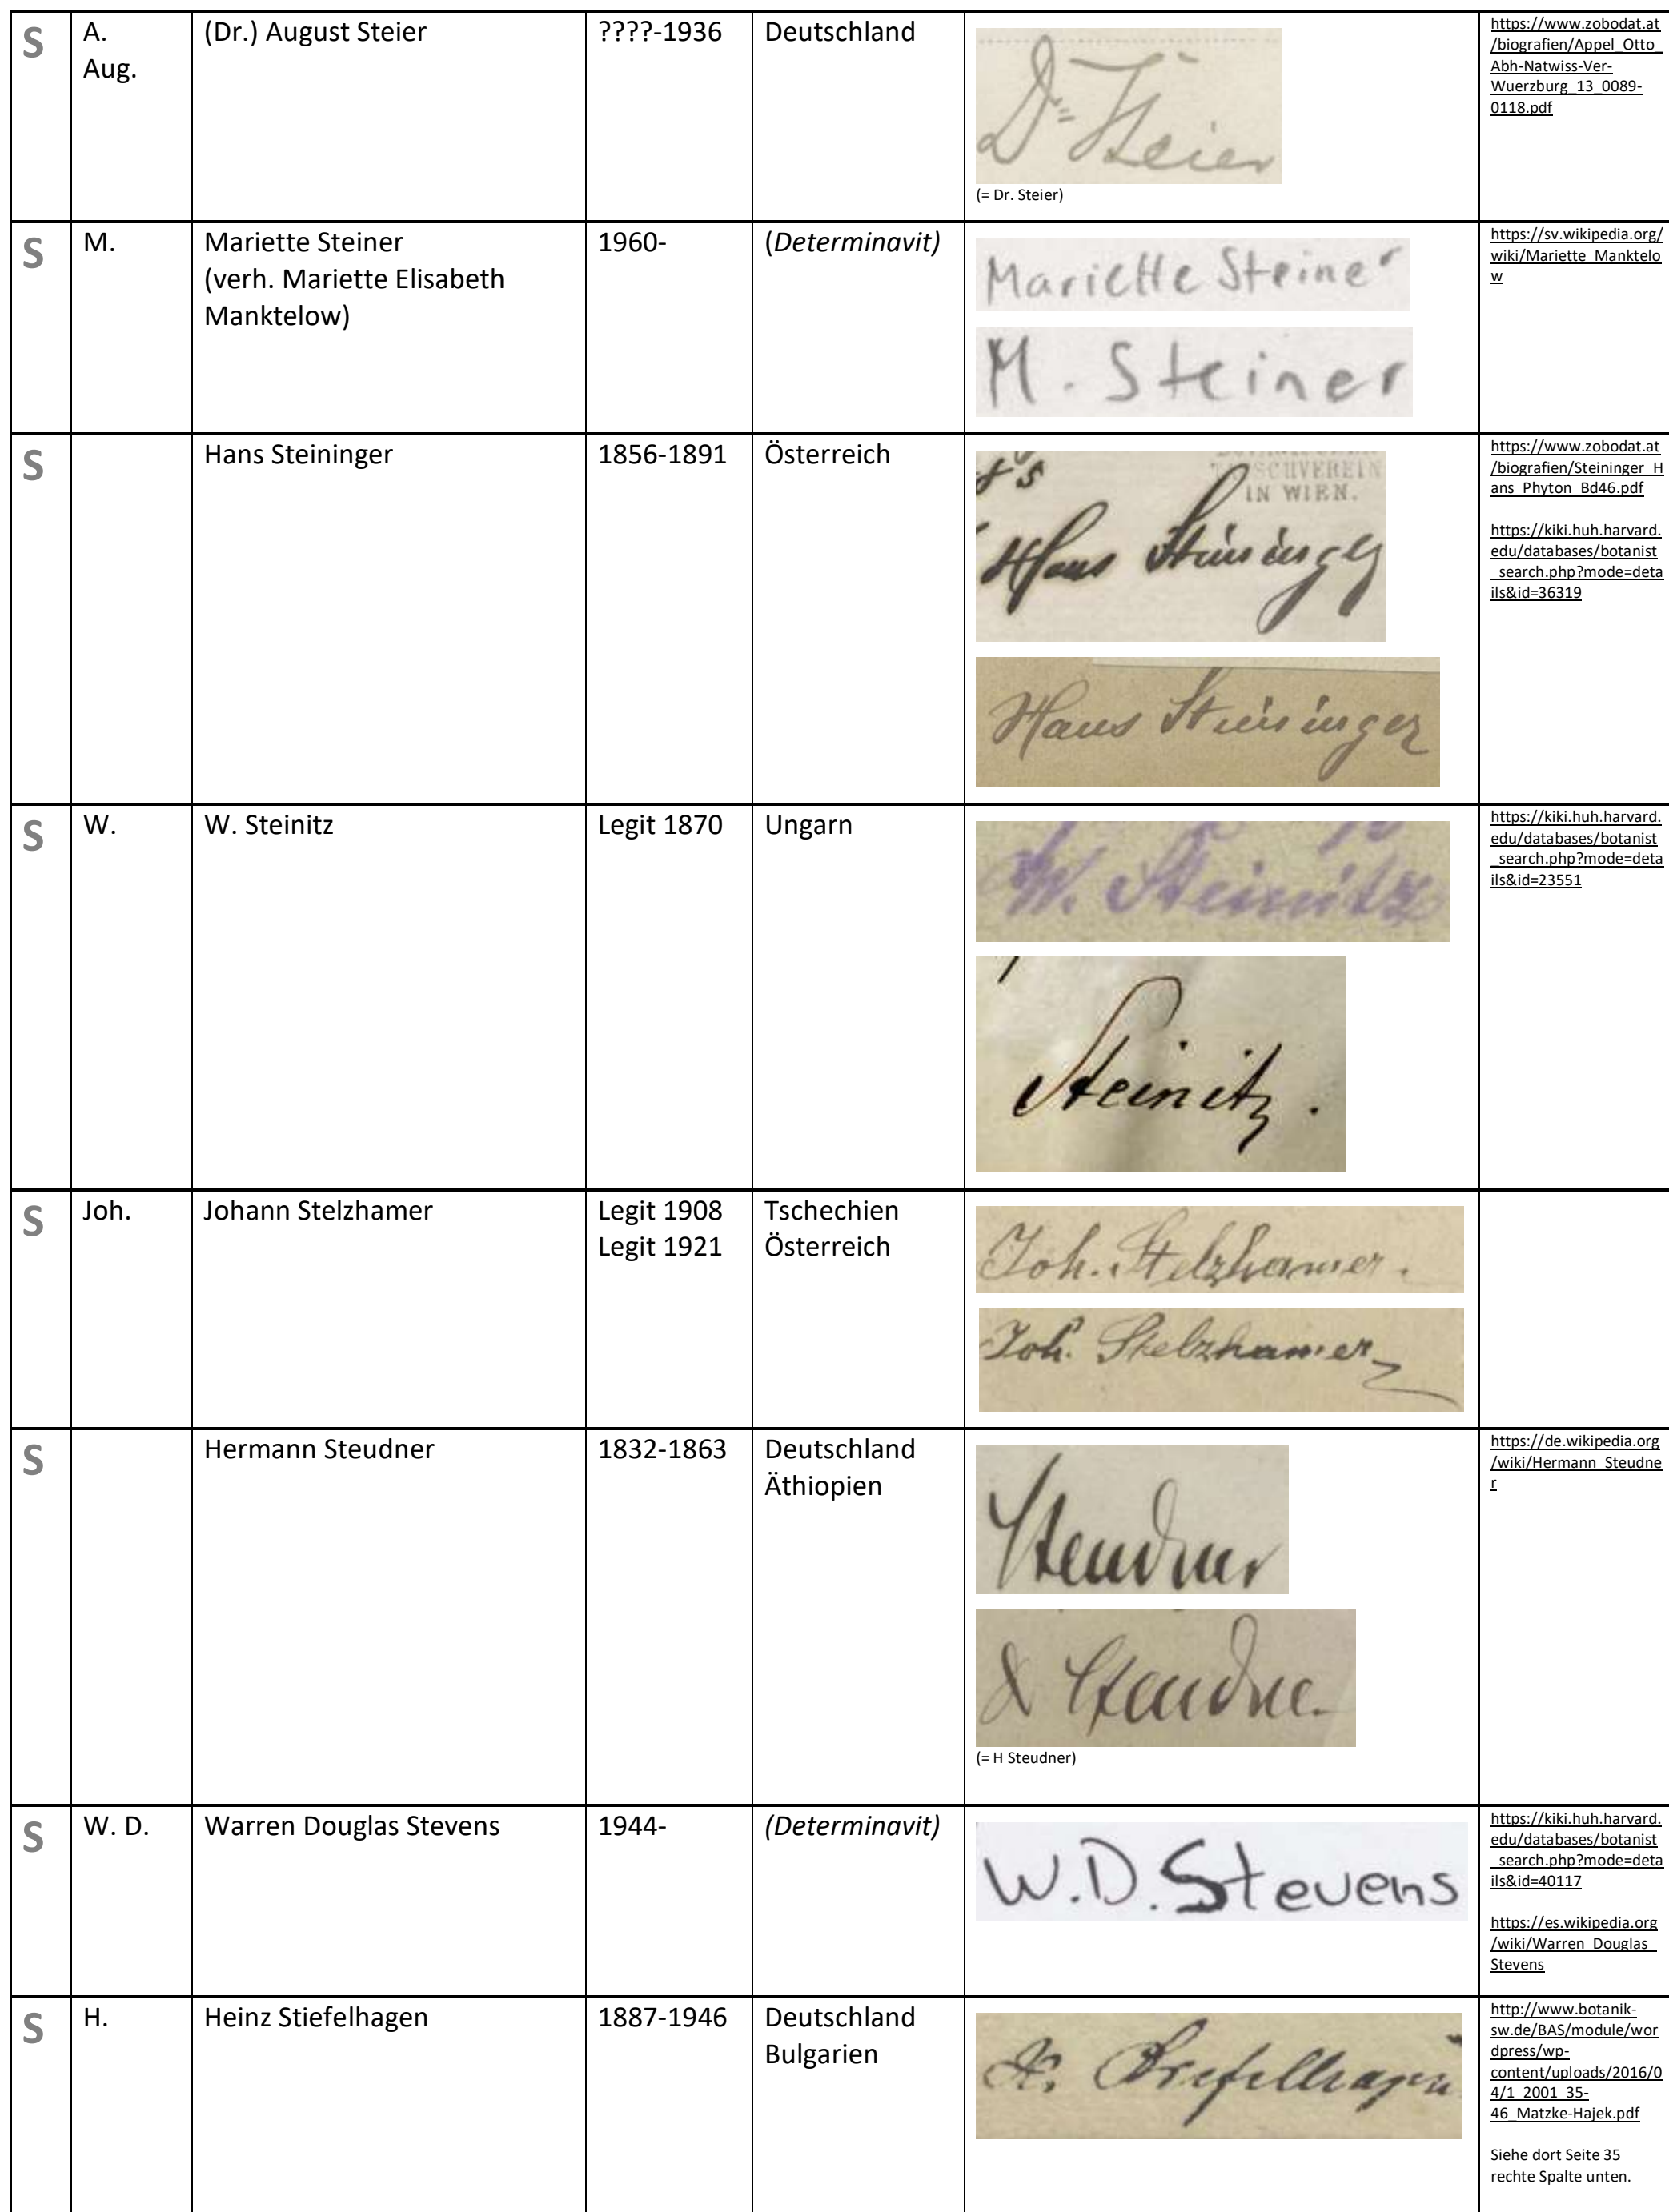 S
A.
Aug.
(Dr.) August Steier
????-1936
Deutschland
Dr= Steier
(= Dr. Steier)
https://www.zobodat.at
/biografien/Appel_Otto_
Abh-Natwiss-Ver-
Wuerzburg_13_0089-
0118.pdf
S
M.
Mariette Steiner
(verh. Mariette Elisabeth
Manktelow)
1960-
(Determinavit)
Mariette Steiner
M. Steiner
https://sv.wikipedia.org/
wiki/Mariette_Manktelo
w
S
Hans Steininger
1856-1891
Österreich
SCHVEREIN
IN WIEN.
Hans Steininger
Hans Steininger
https://www.zobodat.at
/biografien/Steininger_H
ans_Phyton_Bd46.pdf
https://kiki.huh.harvard.
edu/databases/botanist
_search.php?mode=deta
ils&id=36319
S
W.
W. Steinitz
Legit 1870
Ungarn
W. Steinitz
Steinitz.
https://kiki.huh.harvard.
edu/databases/botanist
_search.php?mode=deta
ils&id=23551
S
Joh.
Johann Stelzhamer
Legit 1908
Legit 1921
Tschechien
Österreich
Joh. Stelzhamer.
Joh. Stelzhamer
S
Hermann Steudner
1832-1863
Deutschland
Äthiopien
Steudner
H Steudner
(= H Steudner)
https://de.wikipedia.org
/wiki/Hermann_Steudne
r
S
W. D.
Warren Douglas Stevens
1944-
(Determinavit)
W.D. Stevens
https://kiki.huh.harvard.
edu/databases/botanist
_search.php?mode=deta
ils&id=40117
https://es.wikipedia.org
/wiki/Warren_Douglas_
Stevens
S
H.
Heinz Stiefelhagen
1887-1946
Deutschland
Bulgarien
H. Stiefelhagen
http://www.botanik-
sw.de/BAS/module/wor
dpress/wp-
content/uploads/2016/0
4/1_2001_35-
46_Matzke-Hajek.pdf
Siehe dort Seite 35
rechte Spalte unten.